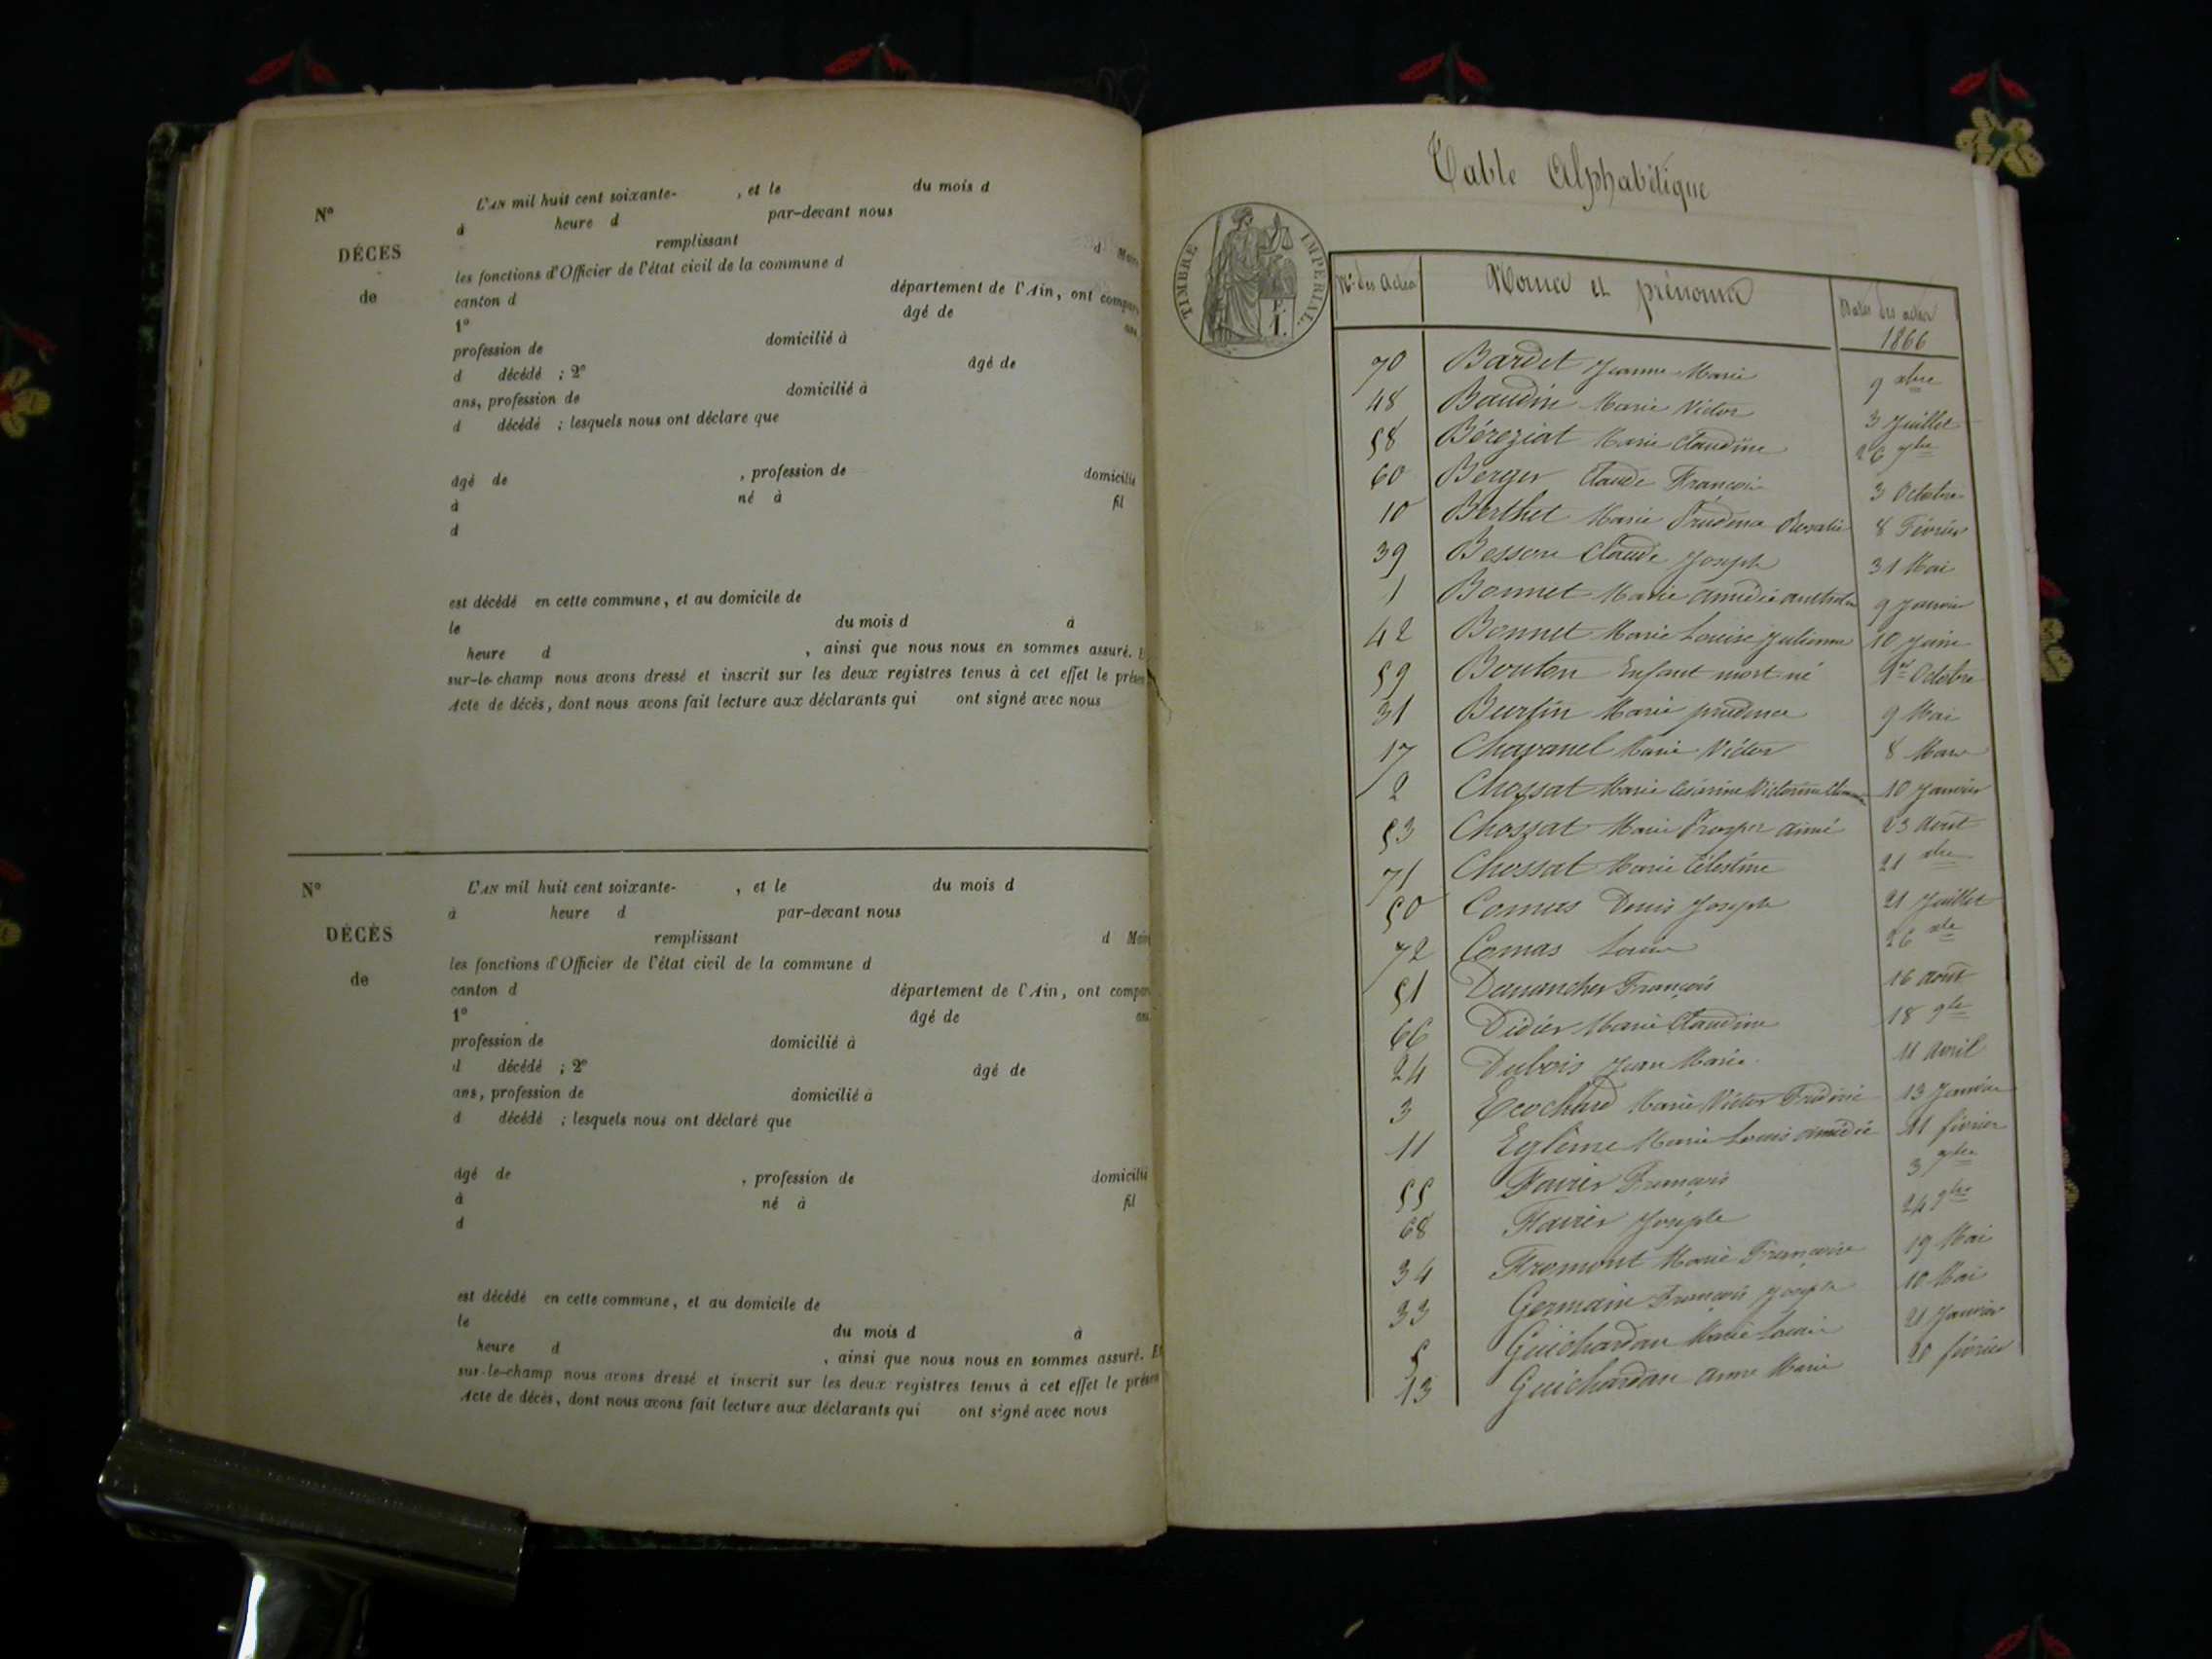 L'AN mil huit cent soixante- , et le du mois d
N° à heure d par-devant nous
remplissant d Maire
DÉCES les fonctions d'Officier de l'état civil de la commune d
de canton d département de l'Ain, ont compar
1° âgé de ans,
profession de domicilié à
d décédé ; 2° âgé de
ans, profession de domicilié à
d décédé ; lesquels nous ont déclaré que
âgé de , profession de domicilié
à né à fil
d
est décédé en cette commune, et au domicile de
le du mois d à
heure d , ainsi que nous nous en sommes assuré. E
sur-le-champ nous avons dressé et inscrit sur les deux registres tenus à cet effet le présen
Acte de décès, dont nous avons fait lecture aux déclarants qui ont signé avec nous
N° L'AN mil huit cent soixante- , et le du mois d
à heure d par-devant nous
DÉCÈS remplissant d Mair
les fonctions d'Officier de l'état civil de la commune d
de canton d département de l'Ain, ont compar
1° âgé de ans
profession de domicilié à
d décédé ; 2° âgé de
ans, profession de domicilié à
d décédé ; lesquels nous ont déclaré que
âgé de , profession de domicilié
à né à fil
d
est décédé en cette commune, et au domicile de
le du mois d à
heure d , ainsi que nous nous en sommes assuré. Et
sur-le-champ nous avons dressé et inscrit sur les deux registres tenus à cet effet le présen
Acte de décès, dont nous avons fait lecture aux déclarants qui ont signé avec nous
Table Alphabétique
TIMBRE IMPERIAL.
N° des Actes Noms et prénoms Dates des actes
1866
70 Bardet Jeanne Marie 9 xbre
48 Baudin Marie Victor 3 Juillet
58 Béréziat Marie Claudine 26 7bre
60 Berger Claude François 3 Octobre
10 Berthet Marie Prudence Rosalie 8 Février
39 Besson Claude Joseph 31 Mai
1 Bonnet Marie amédée 9 Janvier
42 Bonnet Marie Louise Julienne 10 Juin
59 Bouton Enfant mort né 1er Octobre
31 Burtin Marie prudence 9 Mai
17 Chavanel Marie Victor 8 Mars
2 Chossat Marie Césarine Victorine 10 Janvier
53 Chossat Marie Prosper aimé 23 Août
71 Chossat Marie Célestine 21 xbre
50 Comas Denis Joseph 21 Juillet
72 Comas Louis 26 xbre
51 Danancher François 16 août
66 Didier Marie Claudine 18 9bre
24 Dubois Jean Marie 11 Avril
3 Ecochard Marie Victor Frédéric 13 Janvier
11 Eglême Marie Louis amédée 11 février
55 Favier François 3 7bre
68 Favier Joseph 24 9bre
34 Fromont Marie Françoise 19 Mai
33 Germain François Joseph 10 Mai
5 Guichardan Marie Louis 21 Janvier
13 Guichardan Anne Marie 20 février